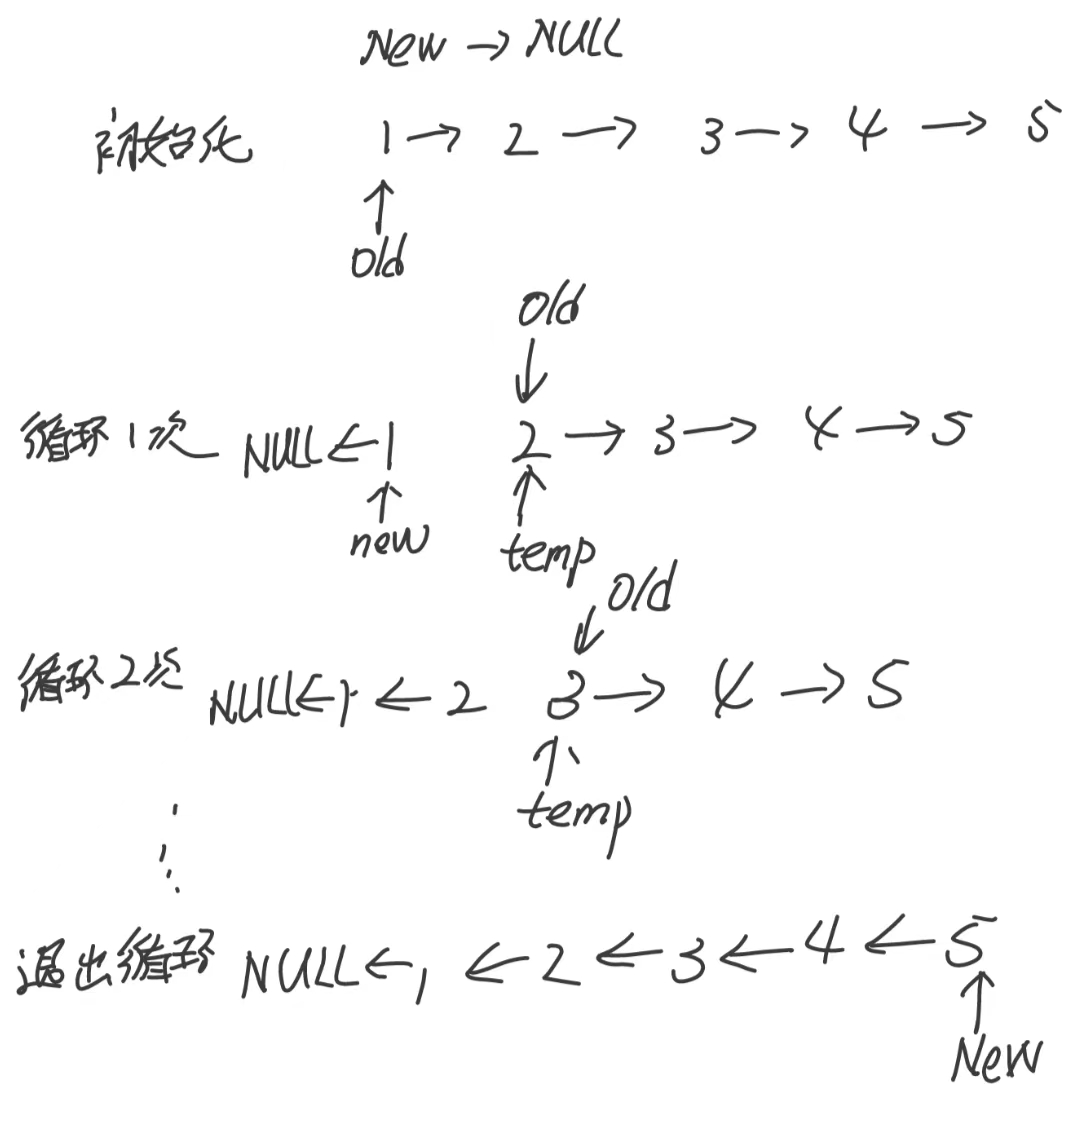 New → NULL
初始化 1 → 2 → 3 → 4 → 5
↑
old
old
↓
循环1次 NULL ← 1 2 → 3 → 4 → 5
↑ ↑
new temp
old
↓
循环2次 NULL ← 1 ← 2 3 → 4 → 5
↑
temp
退出循环 NULL ← 1 ← 2 ← 3 ← 4 ← 5
↑
New